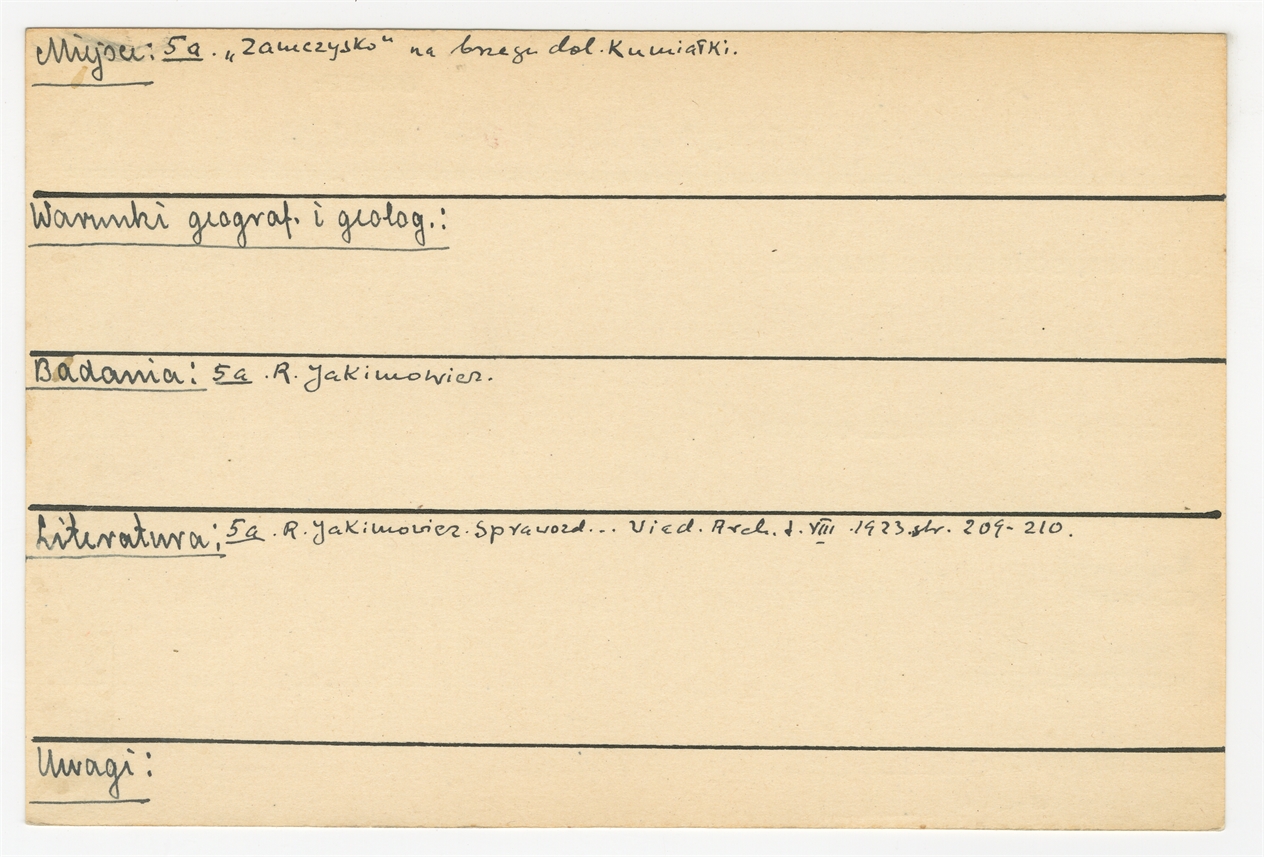 Miejsce: 5a. „Zamczysko" na brzegu dol. Kumiałki.
Warunki geograf. i geolog.:
Badania: 5a. R. Jakimowicz.
Literatura: 5a. R. Jakimowicz. Sprawozd... Wiad. Arch. t. VIII. 1923. str. 209-210.
Uwagi: